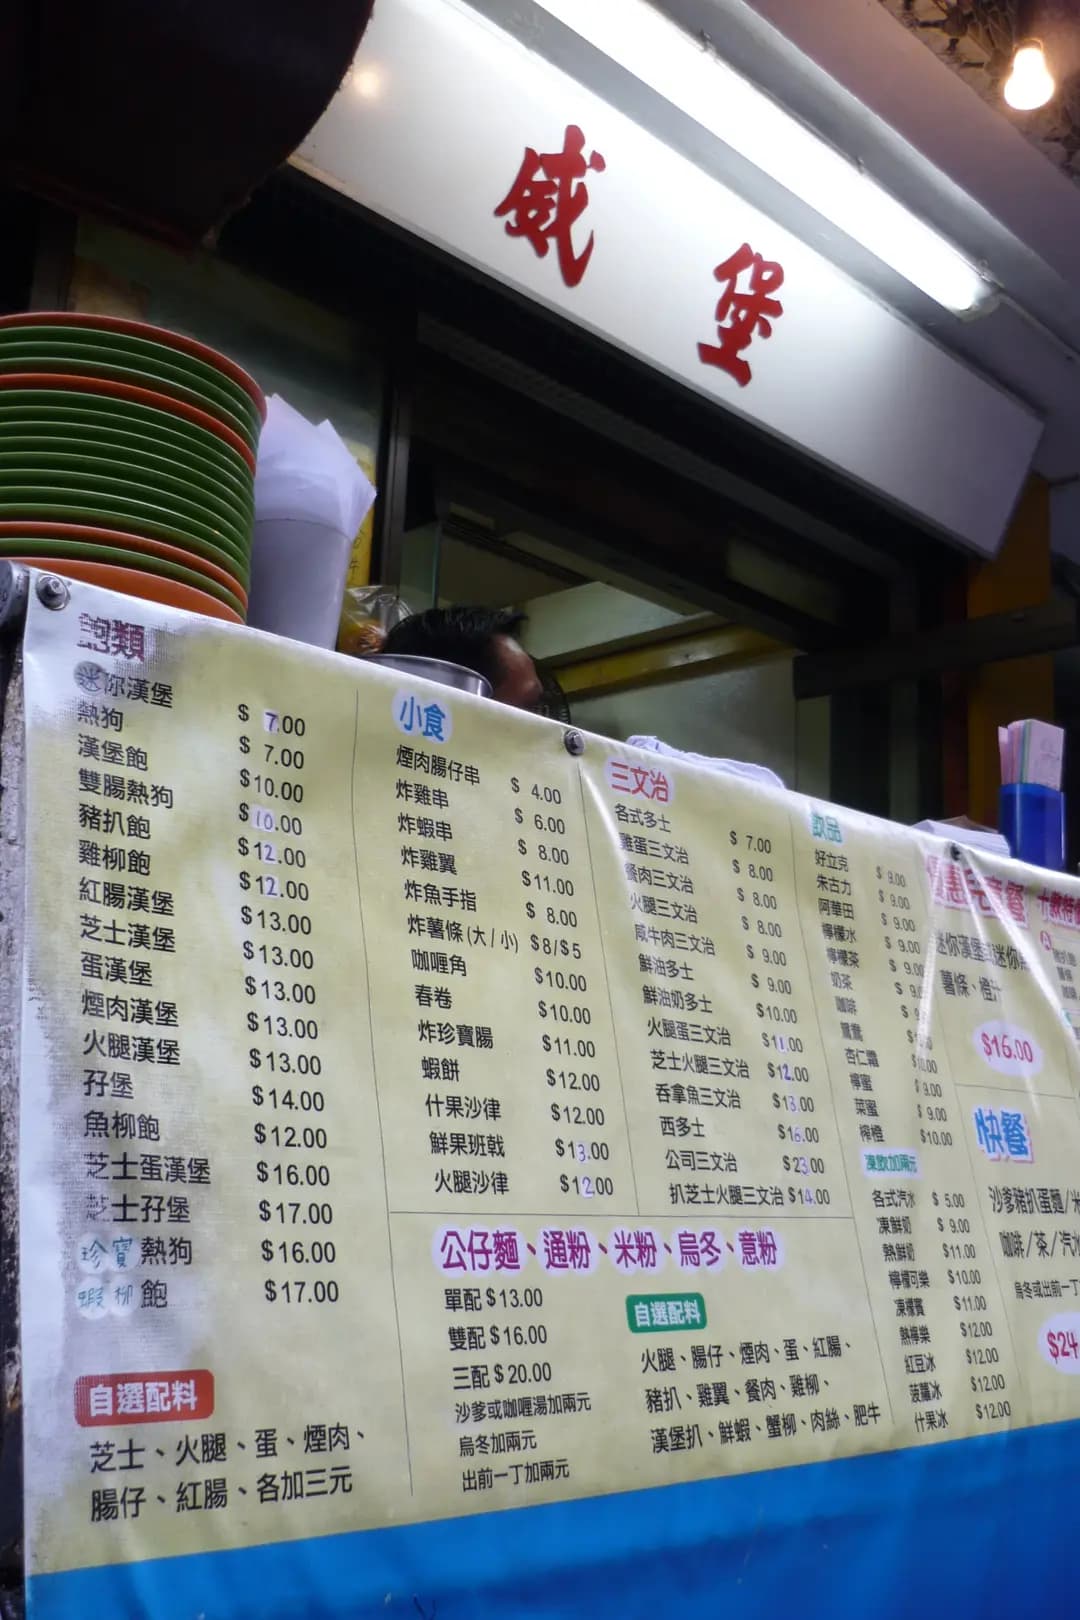 威堡
飽類
迷你漢堡 $ 7.00
熱狗 $ 7.00
漢堡飽 $10.00
雙腸熱狗 $10.00
豬扒飽 $12.00
雞柳飽 $12.00
紅腸漢堡 $13.00
芝士漢堡 $13.00
蛋漢堡 $13.00
煙肉漢堡 $13.00
火腿漢堡 $13.00
孖堡 $14.00
魚柳飽 $12.00
芝士蛋漢堡 $16.00
芝士孖堡 $17.00
珍寶熱狗 $16.00
蝦柳飽 $17.00
自選配料
芝士、火腿、蛋、煙肉、
腸仔、紅腸、各加三元
小食
煙肉腸仔串 $ 4.00
炸雞串 $ 6.00
炸蝦串 $ 8.00
炸雞翼 $11.00
炸魚手指 $ 8.00
炸薯條(大/小) $8/$5
咖喱角 $10.00
春卷 $10.00
炸珍寶腸 $11.00
蝦餅 $12.00
什果沙律 $12.00
鮮果班戟 $13.00
火腿沙律 $12.00
三文治
各式多士 $ 7.00
雞蛋三文治 $ 8.00
餐肉三文治 $ 8.00
火腿三文治 $ 8.00
咸牛肉三文治 $ 9.00
鮮油多士 $ 9.00
鮮油奶多士 $10.00
火腿蛋三文治 $11.00
芝士火腿三文治 $12.00
吞拿魚三文治 $13.00
西多士 $16.00
公司三文治 $23.00
扒芝士火腿三文治 $14.00
公仔麵、通粉、米粉、烏冬、意粉
單配 $13.00
雙配 $16.00
三配 $20.00
沙爹或咖喱湯加兩元
烏冬加兩元
出前一丁加兩元
自選配料
火腿、腸仔、煙肉、蛋、紅腸、
豬扒、雞翼、餐肉、雞柳、
漢堡扒、鮮蝦、蟹柳、肉絲、肥牛
飲品
好立克 $ 9.00
朱古力 $ 9.00
阿華田 $ 9.00
檸檬水 $ 9.00
檸檬茶 $ 9.00
奶茶 $ 9.
咖啡 $ 9
鴛鴦
杏仁霜
檸蜜 $ 9.00
菜蜜 $ 9.00
檸橙 $10.00
凍飲加兩元
各式汽水 $ 5.00
凍鮮奶 $ 9.00
熱鮮奶 $11.00
檸檬可樂 $10.00
凍檬賓 $11.00
熱檸樂 $12.00
紅豆冰 $12.00
菠蘿冰 $12.00
什果冰 $12.00
優惠兒童餐
迷你漢堡 迷你
薯條、橙汁
$16.00
快餐
沙爹豬扒蛋麵/米
咖啡/茶/汽水
烏冬或出前一丁
$24